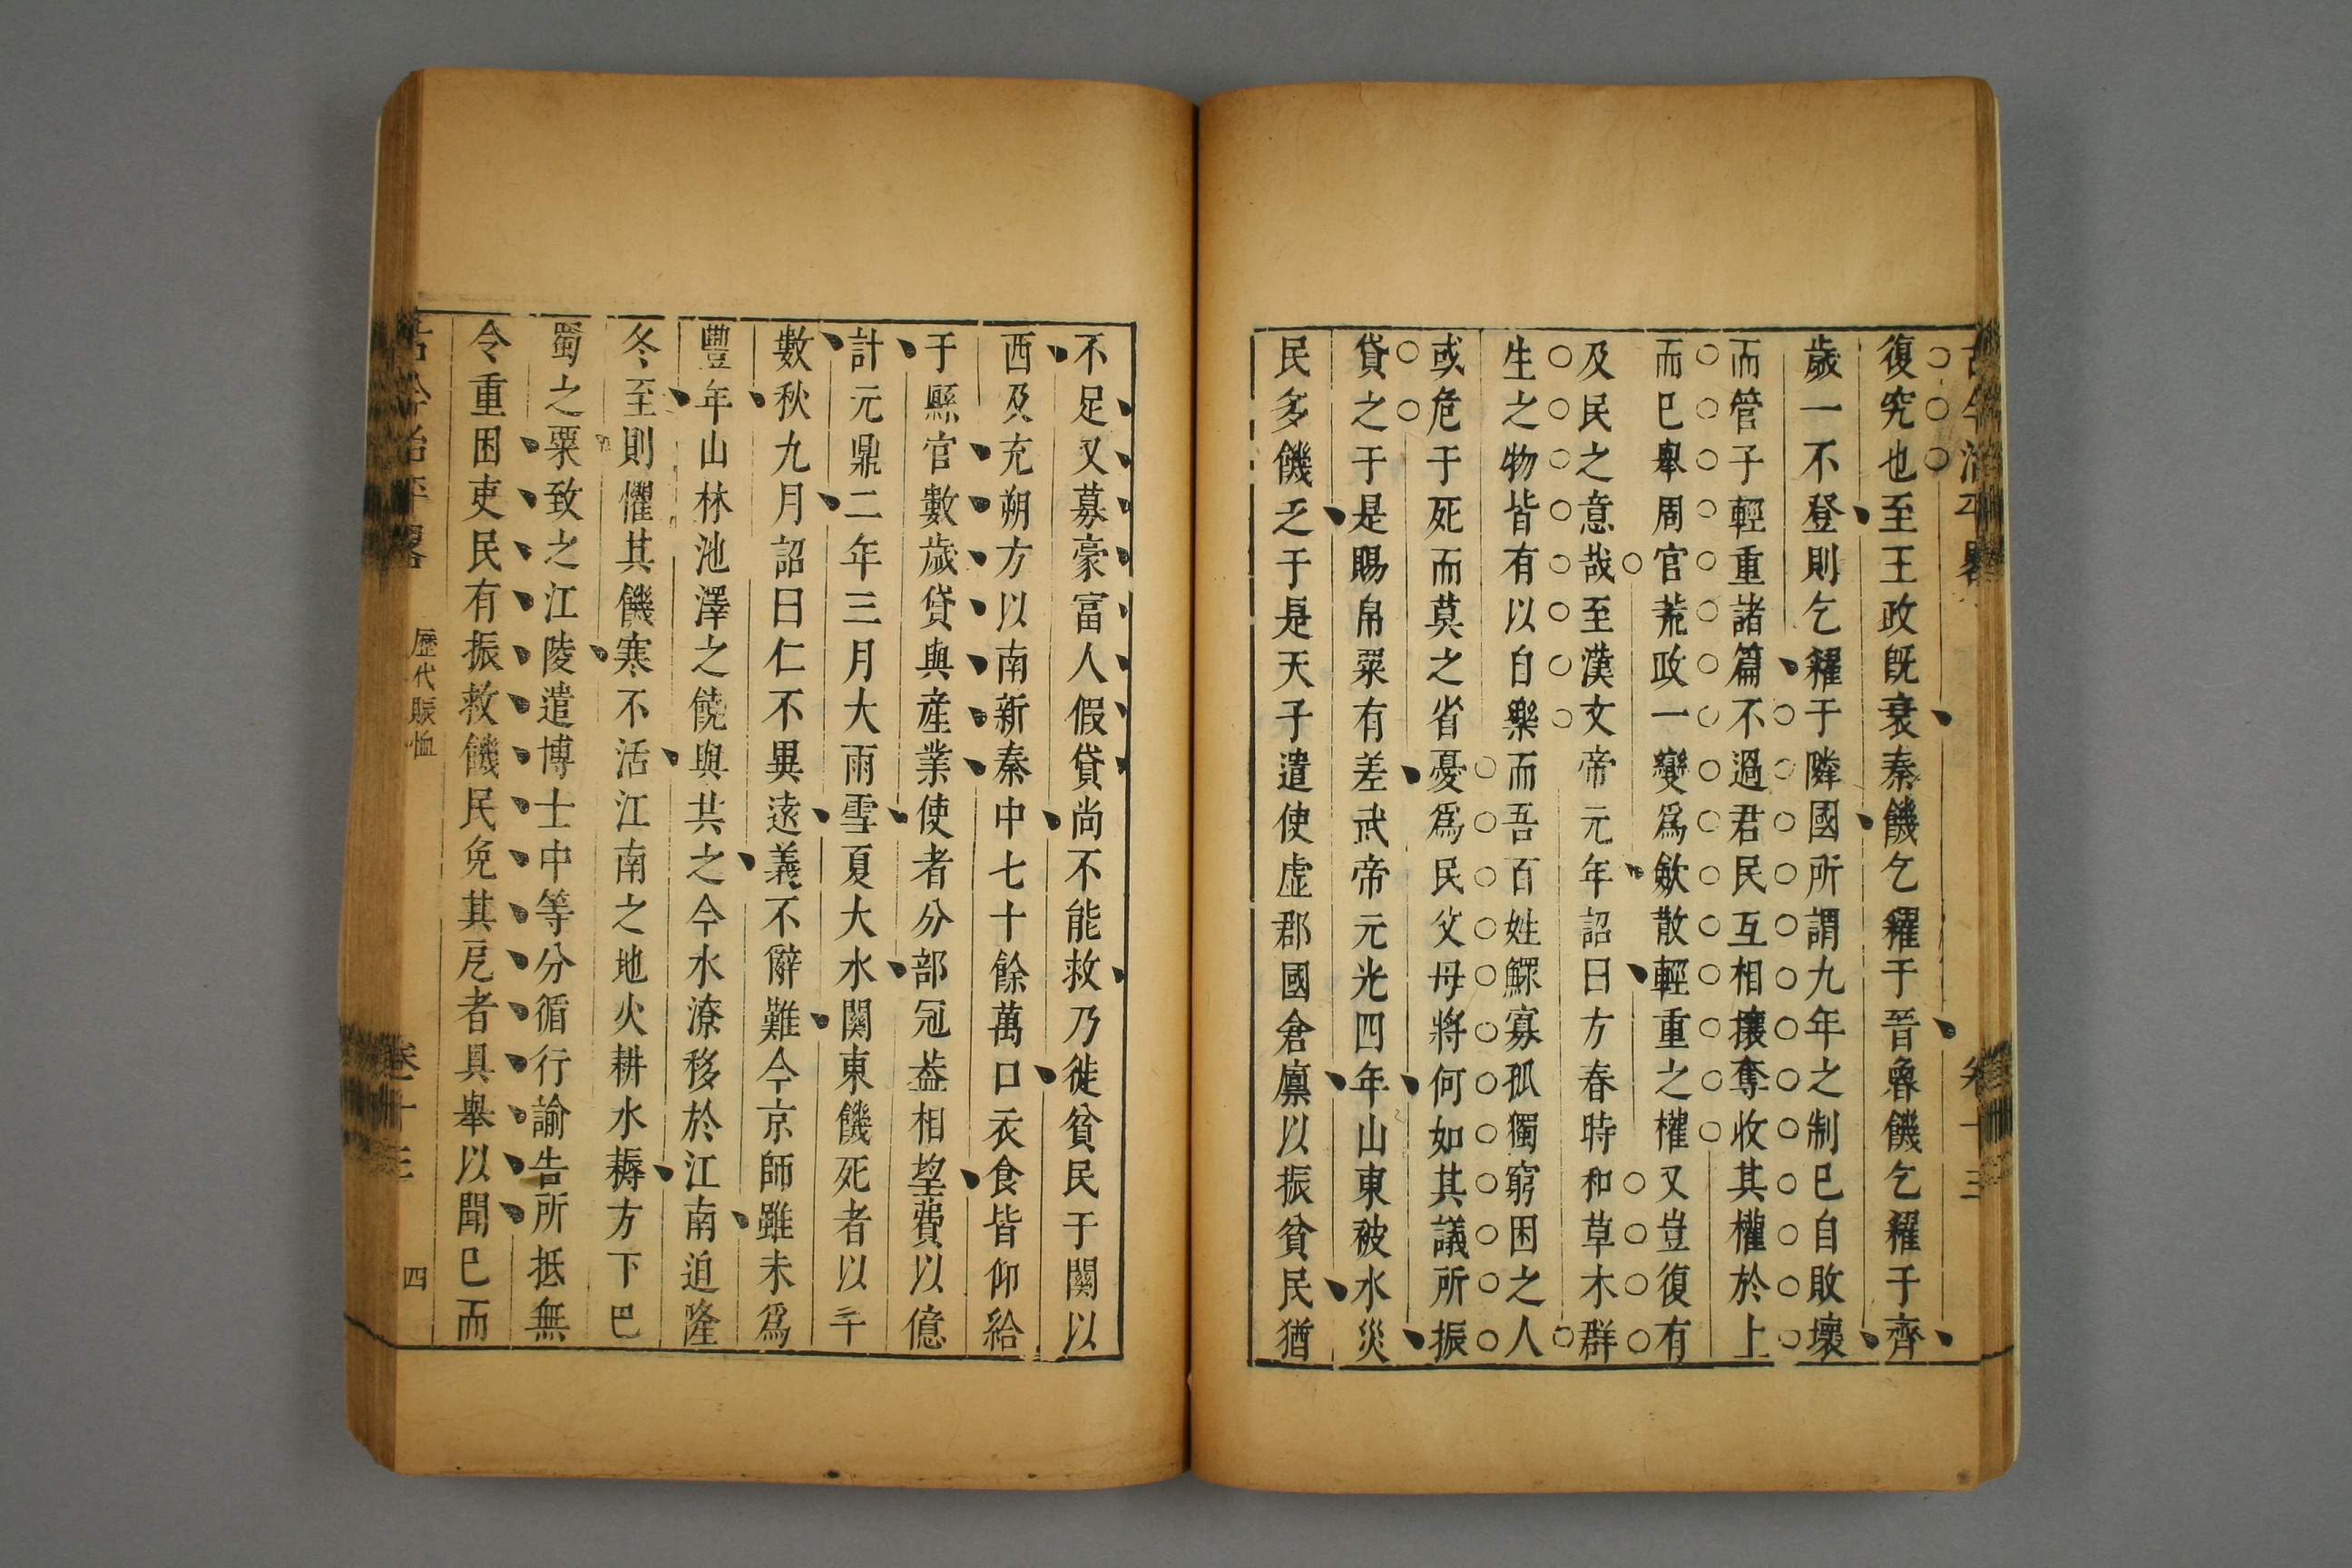 古今治平畧
卷十三
復究也至王政旣衰秦饑乞糴于晉魯饑乞糴于齊
歲一不登則乞糴于隣國所謂九年之制已自敗壞
而管子輕重諸篇不過君民互相攘奪收其權於上
而已舉周官荒政一變爲斂散輕重之權又豈復有
及民之意哉至漢文帝元年詔曰方春時和草木群
生之物皆有以自樂而吾百姓鰥寡孤獨窮困之人
或危于死而莫之省憂爲民父母將何如其議所振
貸之于是賜帛粟有差武帝元光四年山東被水災
民多饑乏于是天子遣使虛郡國倉廩以振貧民猶
不足又募豪富人假貸尚不能救乃徙貧民于關以
西及充朔方以南新秦中七十餘萬口衣食皆仰給
于縣官數歲貸與產業使者分部冠葢相望費以億
計元鼎二年三月大雨雪夏大水關東饑死者以千
數秋九月詔曰仁不異遠義不辭難今京師雖未爲
豐年山林池澤之饒與共之今水潦移於江南迫隆
冬至則懼其饑寒不活江南之地火耕水耨方下巴
蜀之粟致之江陵遣博士中等分循行諭告所抵無
令重困吏民有振救饑民免其戹者具舉以聞已而
古今治平畧
歷代賑恤
卷十三
四